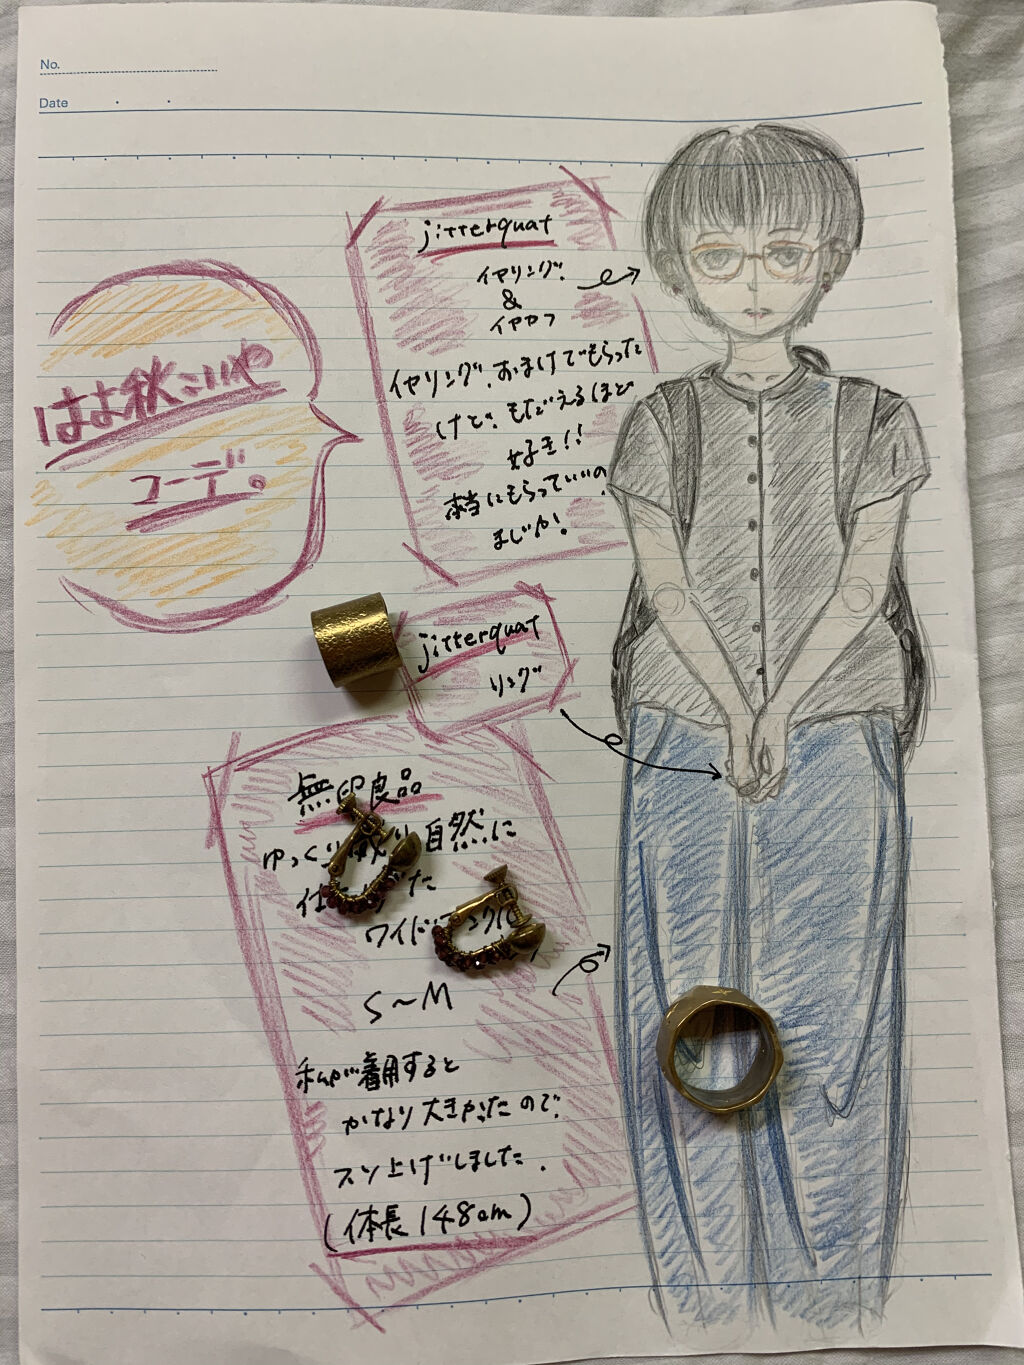 No.
Date
jitterquat
イヤリング
&
イヤカフ
イヤリング、おまけでもらった
けど、もだえるほど
好き!!
本当にもらっていいの
まじか!
はよ秋こいや
コーデ。
jitterquat
リング
無印良品
ゆっくり 自然に
ワイド
S〜M
私が着用すると
かなり大きかったので、
スソ上げしました.
(体長148cm)